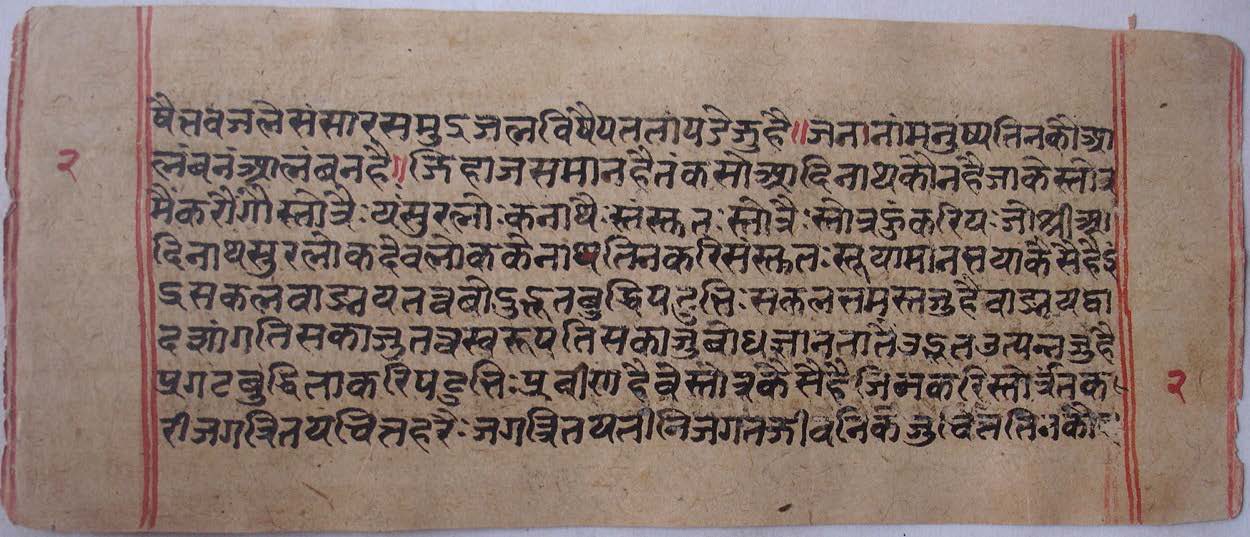 षैभवजले संसारसमुऽजलविषैपततायडेजुहै॥जनानांमनुष्यतिनकौआ
२ लंबनंआलंबनहै॥जिहाजसमानहैतंकसोआदिनाथकौनहैजाकेस्तोत्र
मैंकरौंगौस्तोत्रै:यंसुरलोकनाथै:संस्तुत:स्तोत्रै:स्तोत्रहुंकरिय:जोश्रीआ
दिनाथसुरलोकदेवलोककेनाथतिनकरिसंस्तुत:स्तूयामानभयाकैसैहैइं
ऽसकलवाङ्मयतत्वबोधुद्भुतबुद्धिपटुभि:सकलसमस्तजुहैवाङ्मयद्वा
दशांगतिसकाजुतत्वस्वरूपतिसकाजुबोधज्ञानतातैउद्भुतउत्पन्नजुहै
प्रगटबुद्धिताकरिपटुभि:प्रबीणहैवेस्तोत्रकैसैहैजिनकरिस्तोत्रतक २
रीजगत्रितयचितहरै:जगत्रितयतीनिजगतजीवनिकेजुचिततिनकौ